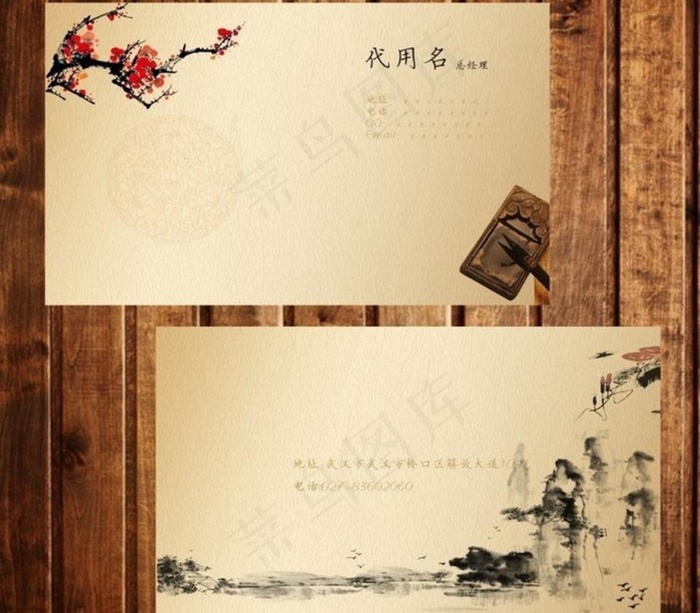 代用名 总经理
地址: × × × × × × × ×
电话: × × × × × × × ×
QQ: × × × × × × × ×
Email: × × × × × × × ×
菜鸟图库
地址:武汉市武汉市桥口区解放大道10
电话:027-83602060
菜鸟图库